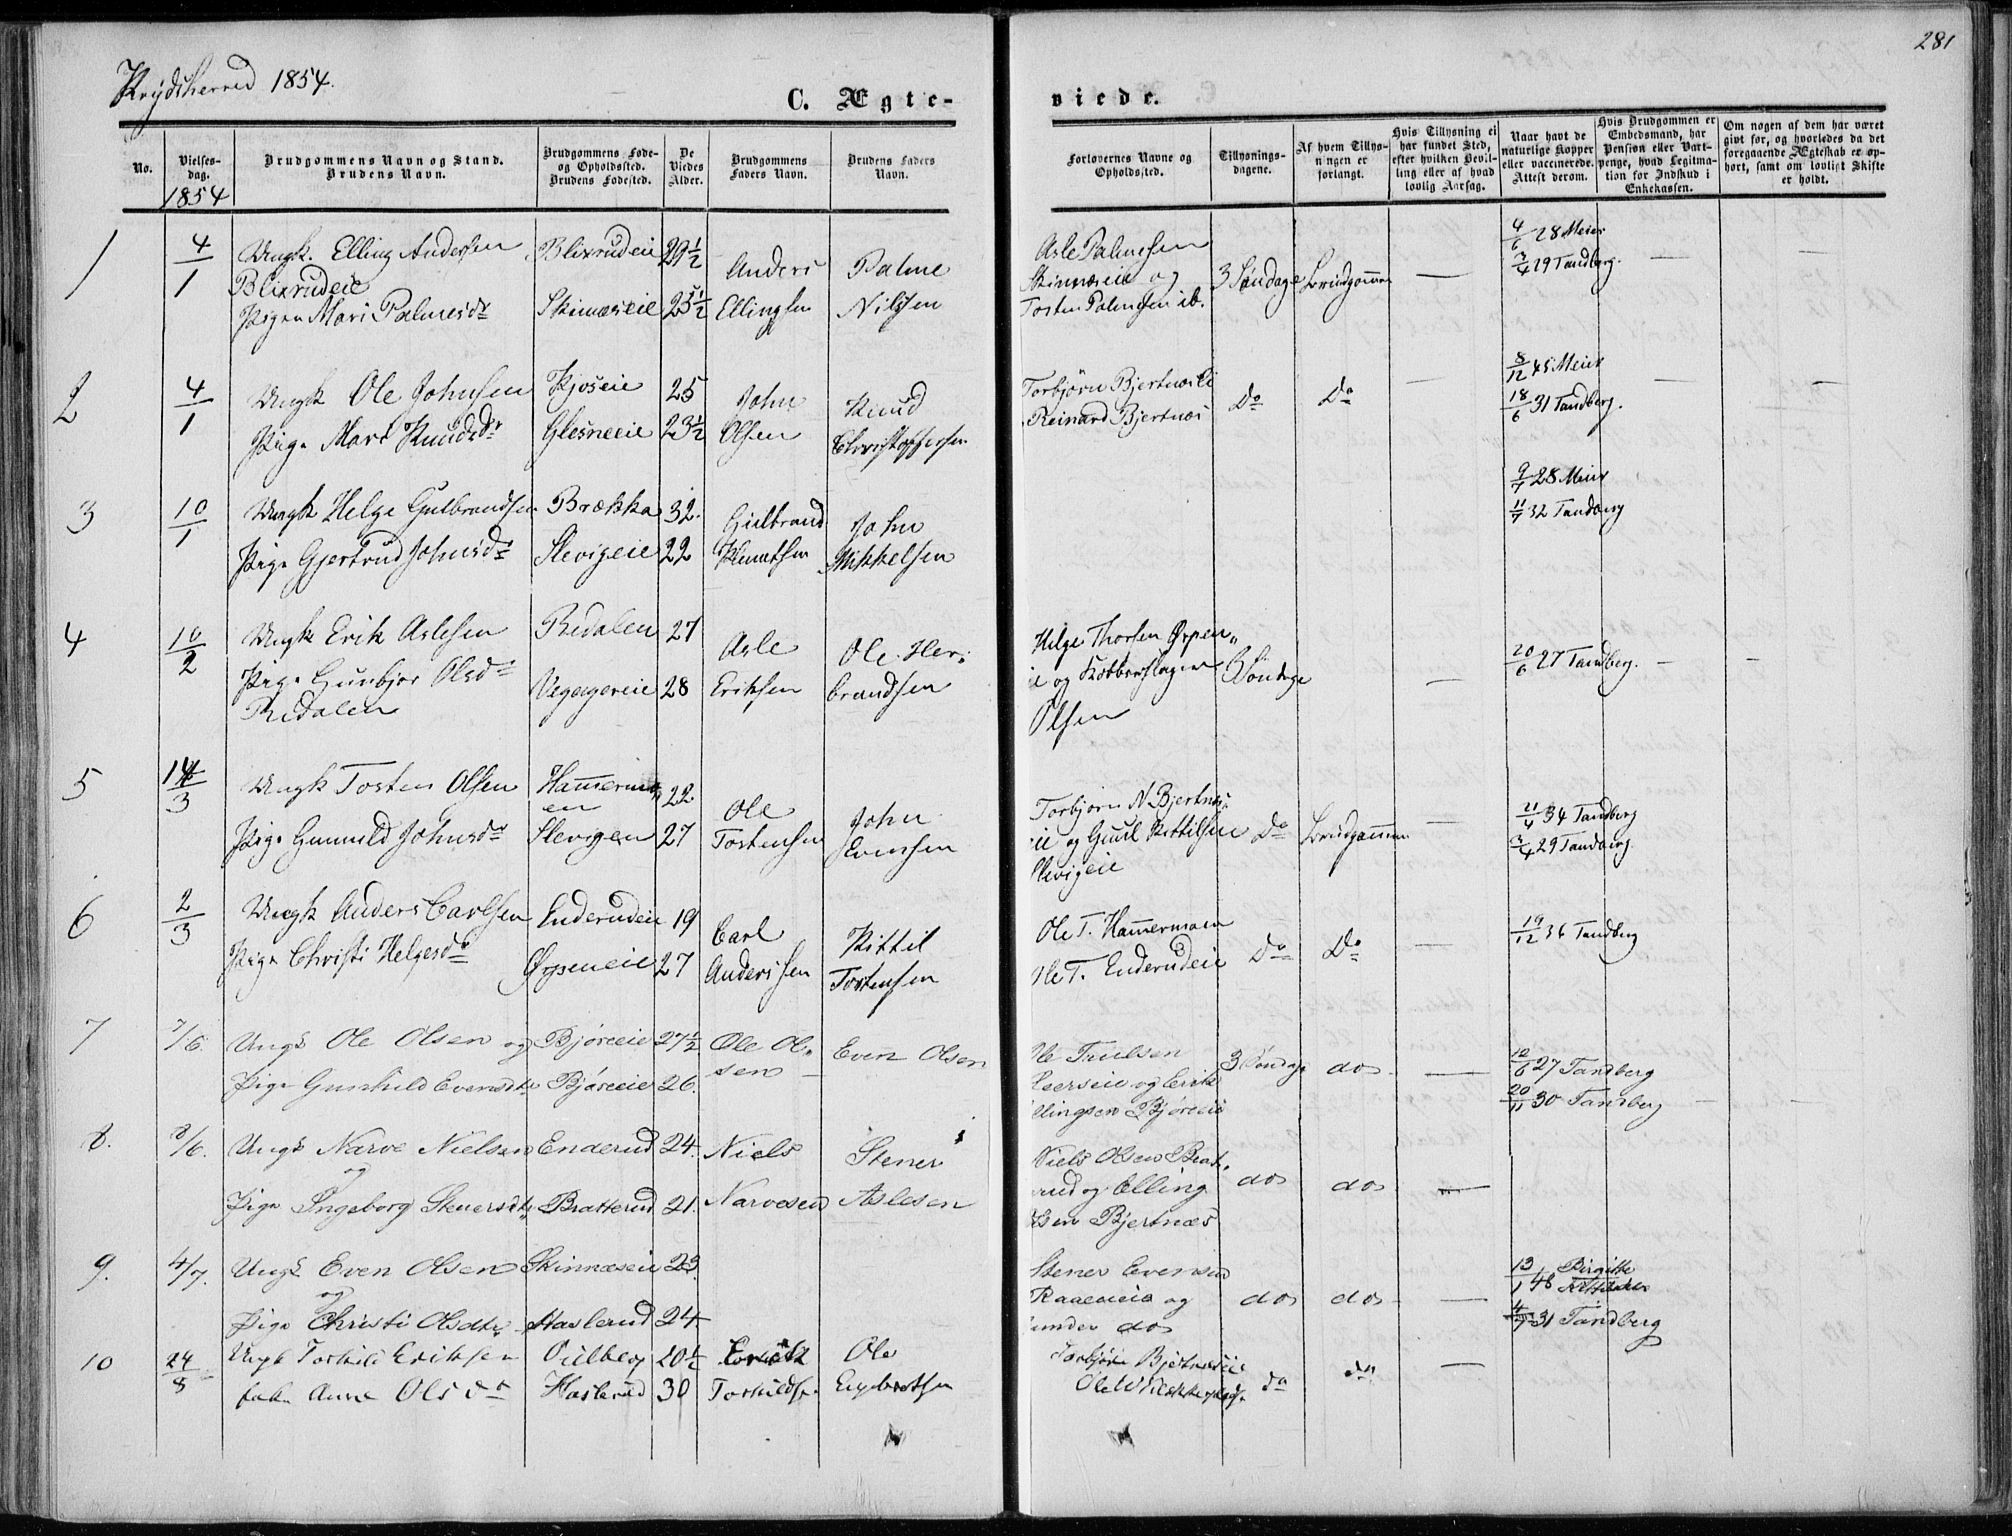 281
Krydsherred 1854.
C. Ægte-
viede.
No.
Vielses-
dag.
1854
Brudgommens Navn og Stand.
Brudens Navn.
Brudgommens Føde-
og Opholdssted.
Brudens Fødested.
De
Viedes
Alder.
Brudgommens
Faders Navn.
Brudens Faders
Navn.
Forlovernes Navne og
Opholdssted.
Tillysnings-
dagene.
Af hvem Tillys-
ningen er
forlangt.
Hvis Tillysning ei
har fundet Sted,
efter hvilken Bevil-
ling eller af hvad
lovlig Aarsag.
Naar havt de
naturlige Kopper
eller vaccinerede.
Attest derom.
Hvis Brudgommen er
Embedsmand, har
Pension eller Vart-
penge, hvad Legitima-
tion for Indskud i
Enkekassen.
Om nogen af dem har været
gift før, og hvorledes da det
foregaaende Ægteskab er op-
hørt, samt om lovligt Skifte
er holdt.
1 4/1 Ungk. Elling Andersen Blixrudeie 29½ Anders Palme
Blixrudeie
Pigen Mari Palmesdr Skinnæseie 25½ Ellingsen Nilsen
Asle Palmesen
Skinnæseie og 3 Søndage Brudgommen — 4/6 28 Meier — —
Tosten Palmesen ib. 3/4 29 Tandberg.
2 4/1 Ungk Ole Johnsen Kjoseie 25 John Knud
Pige Mari Knudsdr Glesneeie 23½ Olsen Christoffersen
Torbjørn Bjertnæseie Do Do — 8/12 45 Meier — —
Reinard Bjertnæs 18/6 31 Tandberg.
3 10/1 Ungk Helge Gulbrandsen Brækka 32. Gulbrand John
Pige Gjertrud Johnsdr Slevigeie 22 Knutsen Mikkelsen
9/7 28 Meier
11/7 32 Tandberg
4 10/2 Ungk Erik Aslesen Redalen 27 Asle Ole Her-
Pige Gunbjør Olsdr Vegagereie 28 Eriksen brandsen
Redalen
Helge Thorsen Ørpen-
ie og Kobberslager 3 Søndage — 20/6 27 Tandberg. — —
Olsen
5 14/3 Ungk Tosten Olsen Hammermoen 22 Ole John
Pige Gunnild Johnsdr Slevigen 27 Tostensen Evensen
Torbjørn N. Bjertnæs-
eie og Gul. Kittilsen Do Brudgommen — 21/4 34 Tandberg
Slevigeie 3/4 29 Tandberg
6 2/3 Ungk Anders Carlsen Enderudeie 19 Carl Kittil
Pige Christi Helgesdr Ørpeneie 27 Anderssen Tostensen
Ole T. Hammermoen Do Do — 19/12 34 Tandberg
Ole T. Enderudeie
7 7/6. Ungk Ole Olsen og Bjøreeie 27½ Ole Ol- Even Olsen
Pige Gunhild Evensdtr Bjøreeie 26. sen
Ole Trulsen 3 Søndage do — 12/6 27 Tandberg
og Erik
Ellingsen Bjøreeie 20/11 30 Tandberg — —
8. 8/6. Ungk Narve Nielsen Enderud 24. Niels Stener
og
Pige Ingeborg Stenersdtr Bratterud 21. Narvesen Aslesen
Niels Olsen Brat-
terud og Elling do do —
Olsen Bjertnæs
9. 4/7. Ungk Even Olsen Skinnæseie 23.
og
Pige Christi Olsdtr Haslerud 24
Stener Evensen
Raaeneie og do do — 13/1 48 Birgitte
Gunder do 4/7 31 Tandberg
10 24/8 Ungk Torkild Eriksen Pulberg 20½ Erik Ole
Anne Olsdr Haslerud 30 Torkildsen Engebretsen
Torbjørn Bjertnæseie do do —
Ole